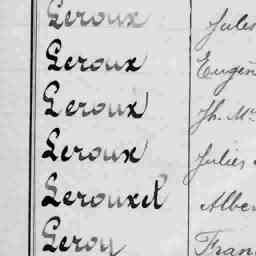 Leroux Jules
Leroux Eugèn
Leroux Th. Mc
Leroux Julies
Lerouxel Alber
Leroy Fran